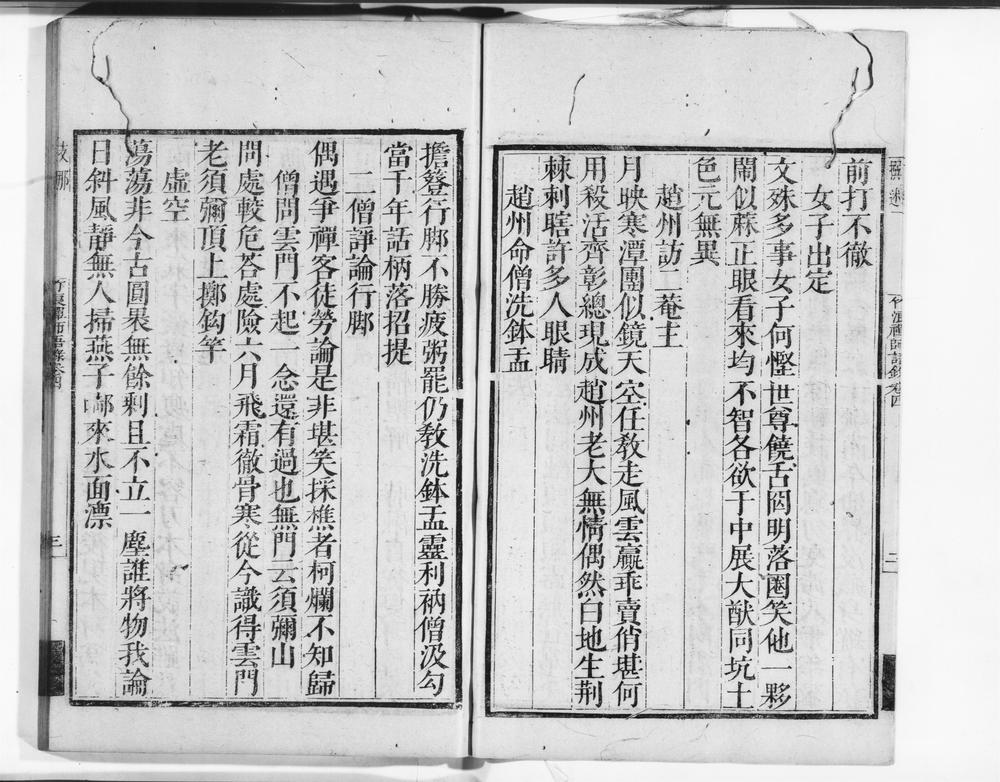 前打不徹
女子出定
文殊多事女子何慳世尊饒舌罔明落圈笑他一夥
鬧似蔴正眼看來均不智各欲于中展大猷同坑土
色元無異
趙州訪二菴主
月映寒潭團似鏡天空任教走風雲贏乖賣俏堪何
用殺活齊彰總現成趙州老大無情偶然白地生荆
棘刺瞎許多人眼睛
趙州命僧洗鉢盂
擔簦行脚不勝疲粥罷仍教洗鉢盂靈利衲僧汲勾
當千年話柄落招提
二僧諍論行脚
偶遇爭禪客徒勞論是非堪笑採樵者柯爛不知歸
僧問雲門不起一念還有過也無門云須彌山
問處較危荅處險六月飛霜徹骨寒從今識得雲門
老須彌頂上擲鈎竿
虛空
蕩蕩非今古圓杲無餘剩且不立一塵誰將物我論
日斜風靜無人掃燕子啣來水面漂
三